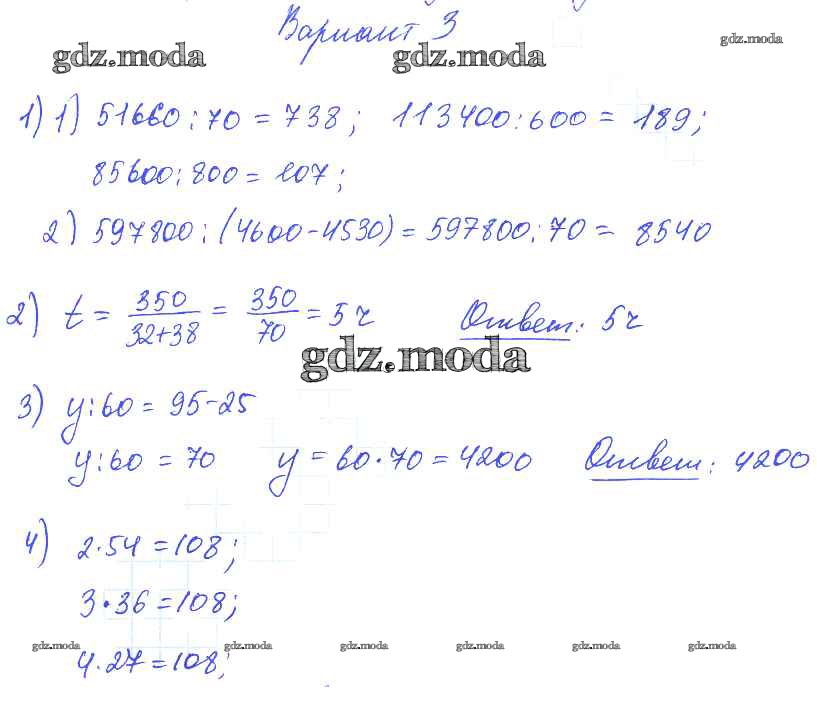 Вариант 3
gdz.moda gdz.moda gdz.moda
1) 1) 51660 : 70 = 738 ; 113400 : 600 = 189;
85600 : 800 = 107 ;
2) 597800 : (4600-4530) = 597800 : 70 = 8540
2) t = 350/32+38 = 350/70 = 5 ч Ответ: 5 ч
gdz.moda
3) y : 60 = 95-25
y : 60 = 70 y = 60 · 70 = 4200 Ответ: 4200
4) 2 · 54 = 108 ;
3 · 36 = 108;
gdz.moda gdz.moda gdz.moda gdz.moda gdz.moda gdz.moda
4 · 27 = 108;